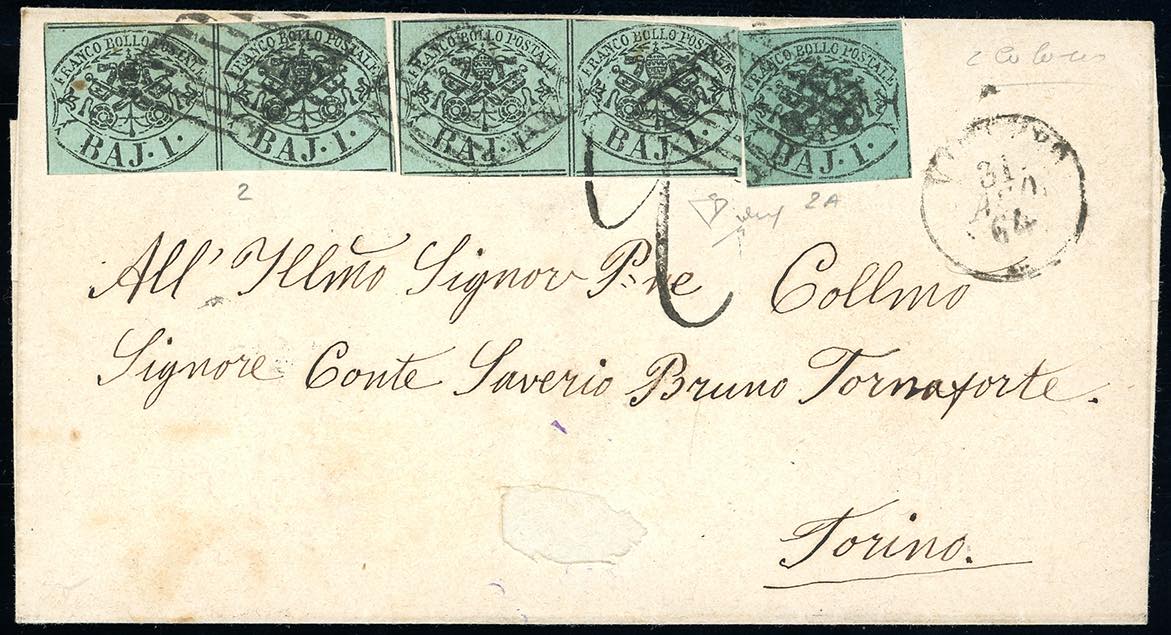 FRANCO BOLLO POSTALE BAJ. 1.
FRANCO BOLLO POSTALE BAJ. 1.
FRANCO BOLLO POSTALE BAJ. 1.
FRANCO BOLLO POSTALE BAJ. 1.
FRANCO BOLLO POSTALE BAJ. 1.
2 Colores
31
AGO
64
2
2A
All' Illmo Signor P.ne Collmo
Signore Conte Saverio Bruno Tornaforte.
Torino.